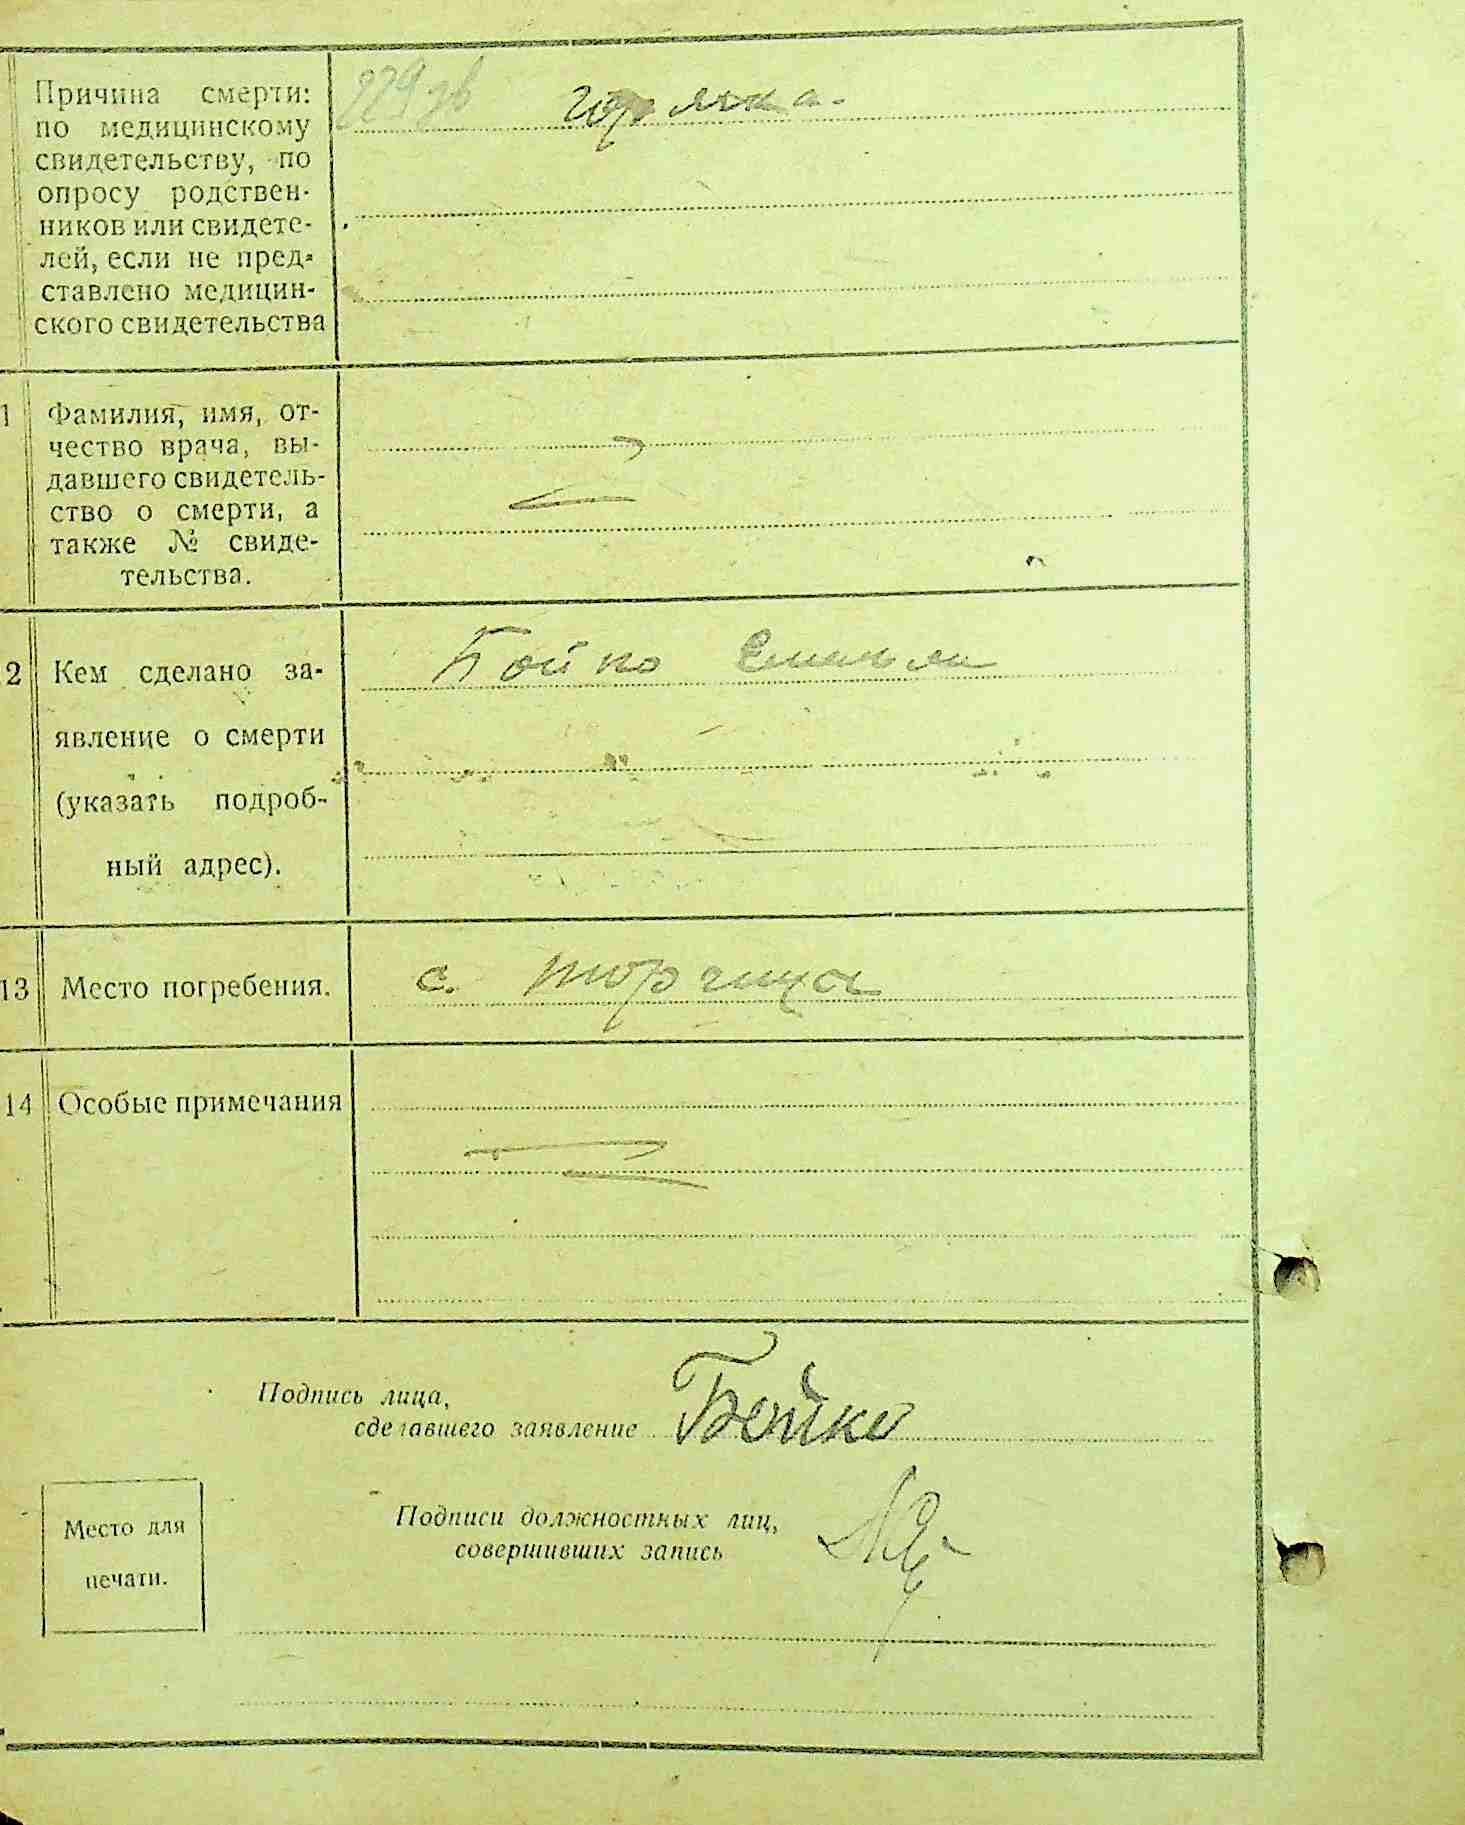 Причина смерти:
по медицинскому
свидетельству, по
опросу родствен-
ников или свидете-
лей, если не пред-
ставлено медицин-
ского свидетельства
горячка.
1 Фамилия, имя, от-
чество врача, вы-
давшего свидетель-
ство о смерти, а
также № свиде-
тельства.
2 Кем сделано за-
явление о смерти
(указать подроб-
ный адрес).
Бойко
13 Место погребения. с. Торчица
14 Особые примечания
Подпись лица,
сделавшего заявление Бойко
Место для
печати.
Подписи должностных лиц,
совершивших запись